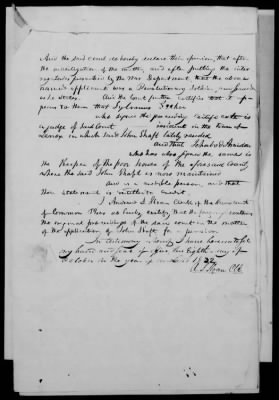 And the said court do hereby declare their opinion, that after
the investigation of the matter, and after putting the inter
rogatories prescribed by the War Department, that the above
named applicant was a Revolutionary Soldier, and
as he states. And the Court further certifies that it ap
pears to them that Sylvanus
who signed the preceding certificate is
a Judge of said Court resident in the town of
Lenox in which said John Shaft lately resided
and that
who has also signed the same is
the Keeper of the poor house of the aforesaid County
where the said John Shaft is now maintained
and is a credible person, and that
their statement is entitled to credit.
I Andrew S. Sloan Clerk of the Court
of Common Pleas do hereby certify that the foregoing contains
the original proceedings of the said court in the matter
of the application of John Shaft for a pension.
In testimony whereof I have hereunto set
my hand and seal of office this Eighth day of
October in the year of our Lord 1832
A. S. Sloan Clk